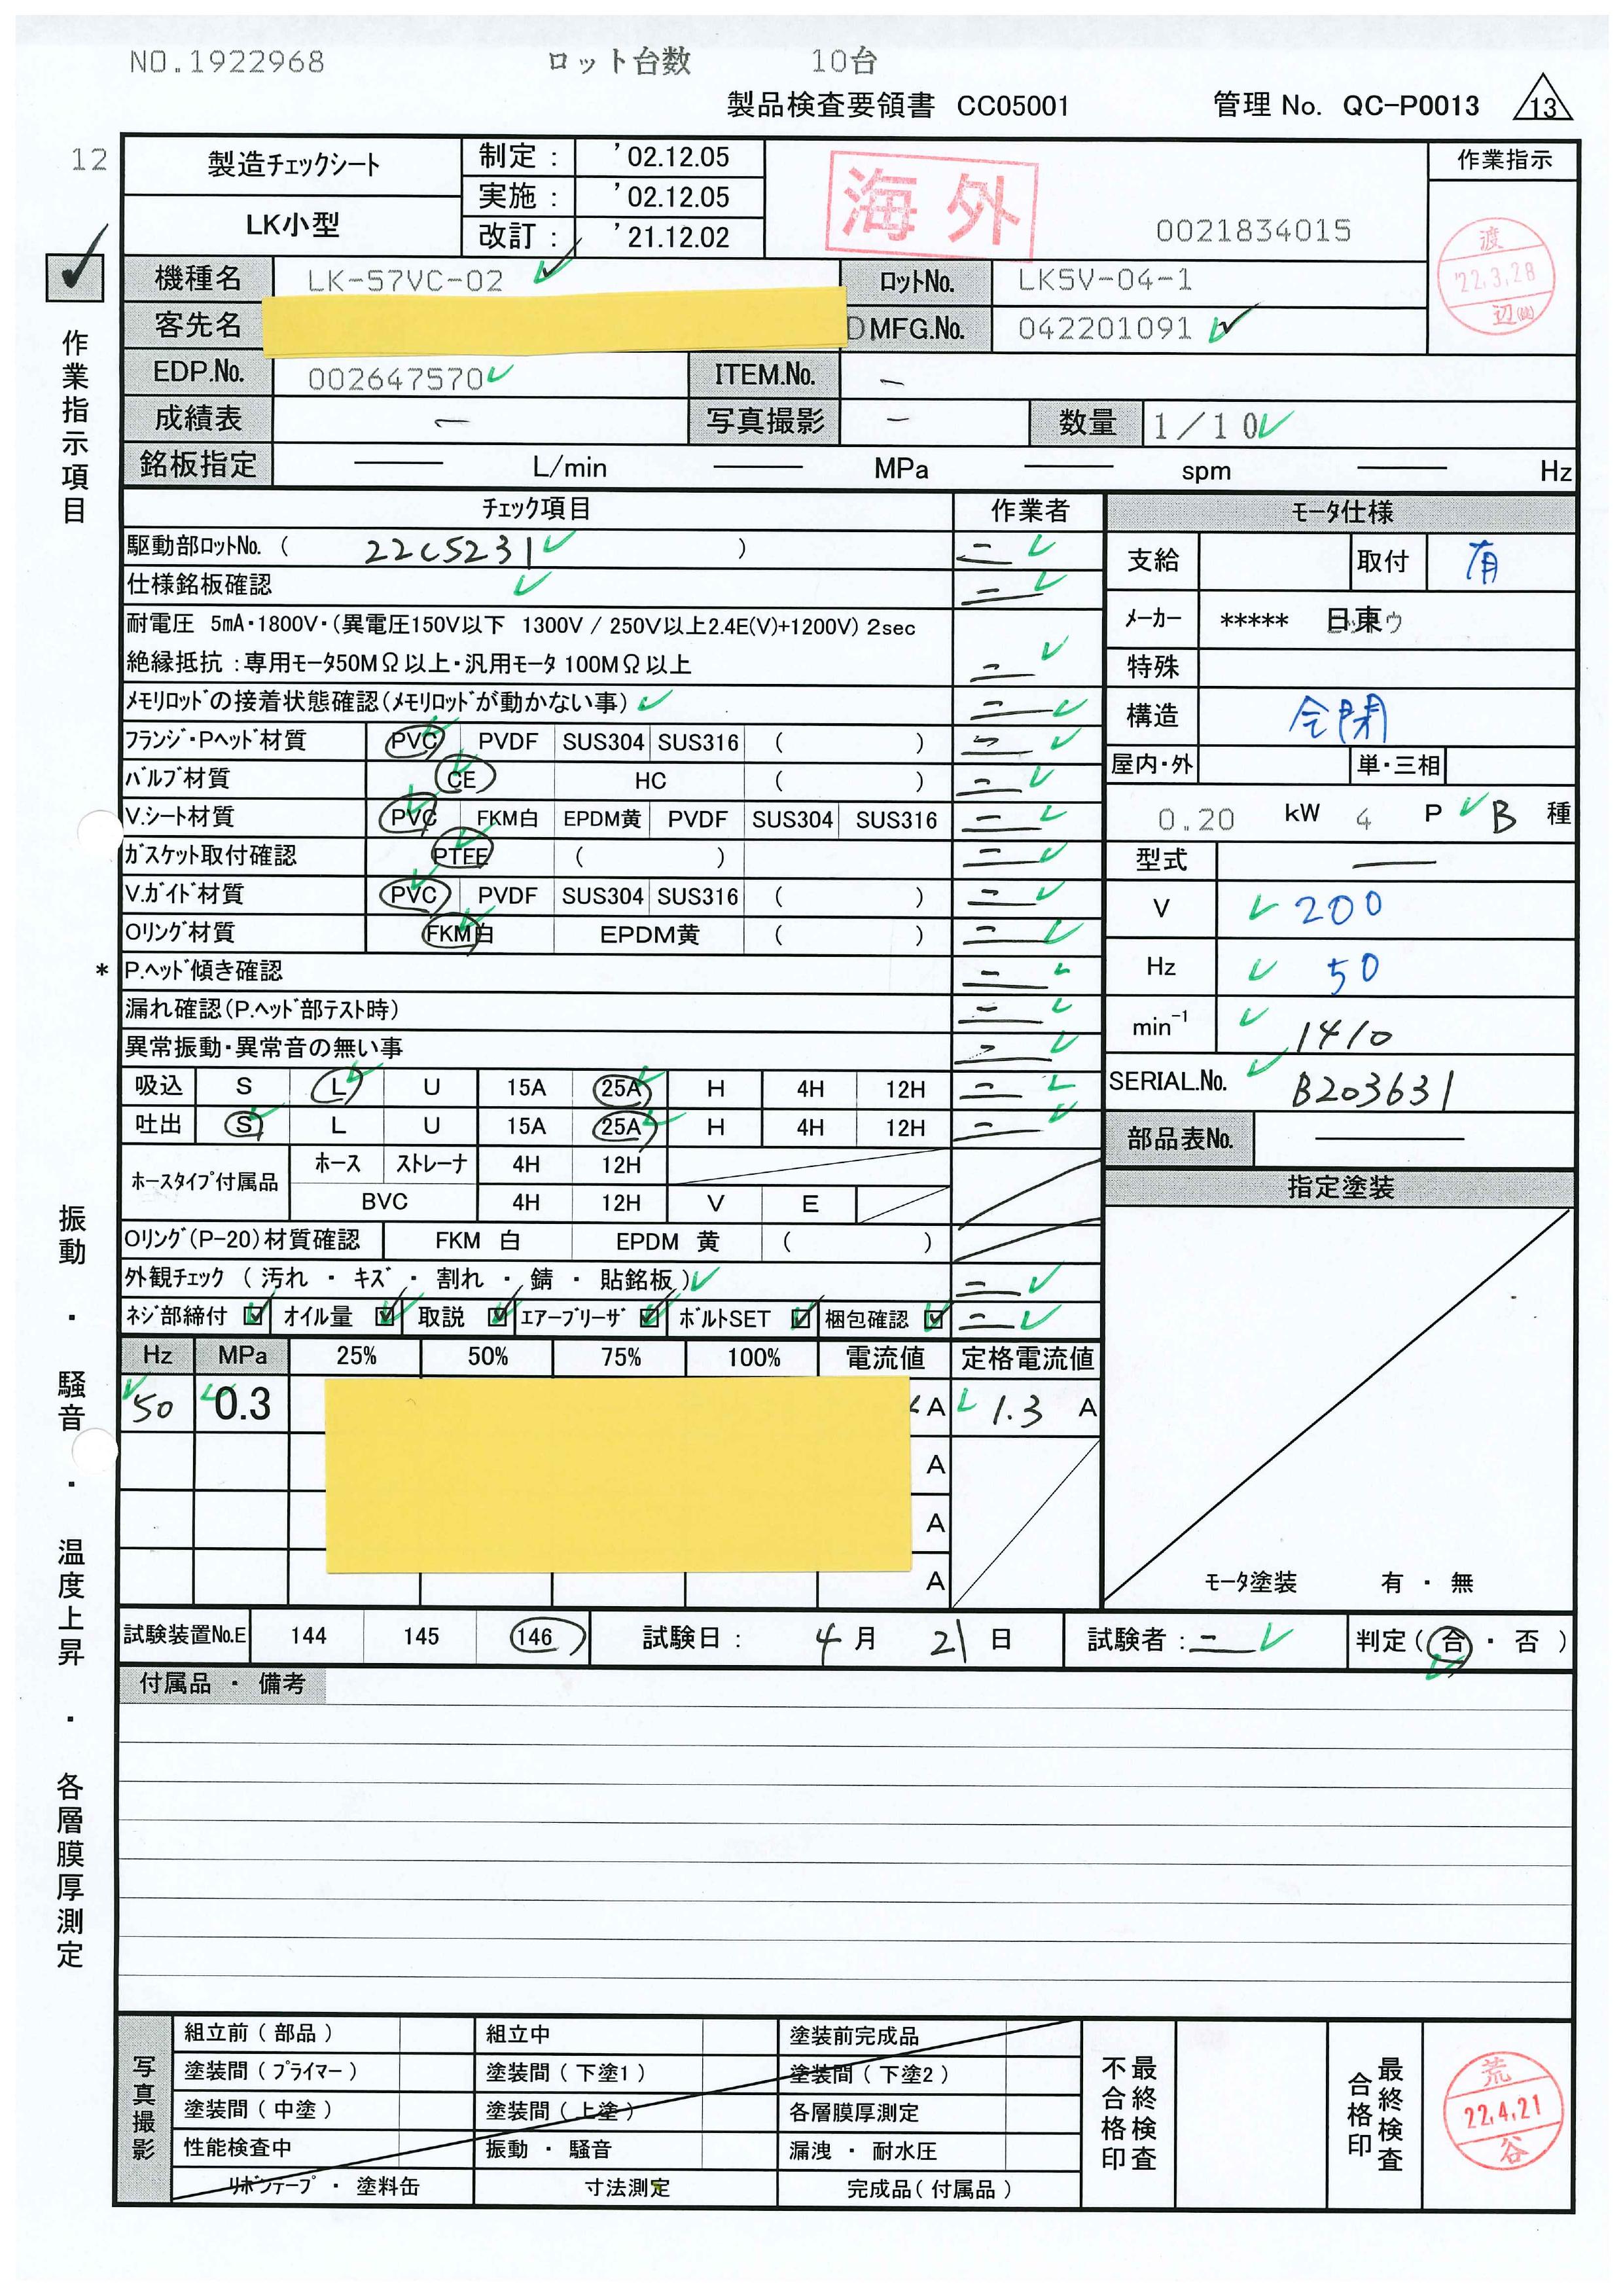 NO.1922968 ロット台数 10台
製品検査要領書 CC05001 管理 No. QC-P0013 13
12
製造チェックシート
LK小型
制定 : '02.12.05
実施 : '02.12.05
改訂 : '21.12.02
海外
0021834015
作業指示
渡
'22.3.28
辺
作業指示項目
機種名 LK-57VC-02 ロットNo. LK5V-04-1
客先名 MFG.No. 042201091
EDP.No. 002647570 ITEM.No. —
成績表 — 写真撮影 — 数量 1/10
銘板指定 —— L/min —— MPa —— spm —— Hz
チェック項目 作業者
駆動部ロットNo. ( 22C5231 ) 二
仕様銘板確認 二
耐電圧 5mA・1800V・(異電圧150V以下 1300V / 250V以上2.4E(V)+1200V) 2sec
絶縁抵抗 : 専用モータ50MΩ以上・汎用モータ 100MΩ以上 二
メモリロッドの接着状態確認(メモリロッドが動かない事) 二
フランジ・Pヘッド材質 PVC PVDF SUS304 SUS316 ( ) 二
バルブ材質 CE HC ( ) 二
V.シート材質 PVC FKM白 EPDM黄 PVDF SUS304 SUS316 二
ガスケット取付確認 PTFE ( ) 二
V.ガイド材質 PVC PVDF SUS304 SUS316 ( ) 二
Oリング材質 FKM白 EPDM黄 ( ) 二
* P.ヘッド傾き確認 二
漏れ確認(P.ヘッド部テスト時) 二
異常振動・異常音の無い事 二
吸込 S L U 15A 25A H 4H 12H 二
吐出 S L U 15A 25A H 4H 12H 二
ホースタイプ付属品 ホース ストレーナ 4H 12H
BVC 4H 12H V E
Oリング(P-20)材質確認 FKM 白 EPDM 黄 ( )
外観チェック ( 汚れ ・ キズ ・ 割れ ・ 錆 ・ 貼銘板 ) 二
ネジ部締付 ☑ オイル量 ☑ 取説 ☑ エアーブリーザ ☑ ボルトSET ☑ 梱包確認 ☑ 二
モータ仕様
支給 取付 有
メーカー ***** 日東
特殊
構造 全閉
屋内・外 単・三相
0.20 kW 4 P B 種
型式 ——
V 200
Hz 50
min⁻¹ 1410
SERIAL.No. B203631
部品表No. ——
指定塗装
モータ塗装 有 ・ 無
Hz MPa 25% 50% 75% 100% 電流値 定格電流値
50 0.3 A 1.3 A
A
A
A
試験装置No.E 144 145 146 試験日 : 4 月 21 日 試験者 : 二 判定 ( 合 ・ 否 )
振動 ・ 騒音 ・ 温度上昇 ・ 各層膜厚測定
付属品 ・ 備考
写真撮影
組立前 ( 部品 ) 組立中 塗装前完成品
塗装間 ( プライマー ) 塗装間 ( 下塗1 ) 塗装間 ( 下塗2 )
塗装間 ( 中塗 ) 塗装間 ( 上塗 ) 各層膜厚測定
性能検査中 振動 ・ 騒音 漏洩 ・ 耐水圧
リボンテープ ・ 塗料缶 寸法測定 完成品( 付属品 )
最終検査不合格印
最終検査合格印
荒
22.4.21
谷